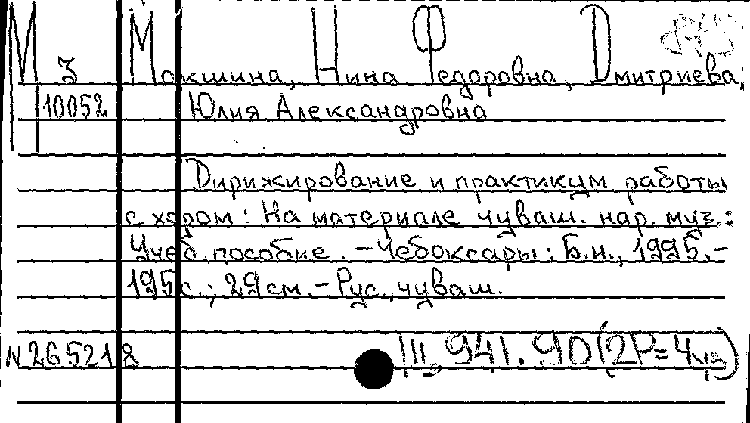 М З Мокшина, Нина Федоровна, Дмитриева,
10052 Юлия Александровна
Дирижирование и практикум работы
с хором: На материале чуваш. нар. муз.:
Учеб. пособие. – Чебоксары: Б.и., 1995. –
195 с.; 29 см. – Рус., чуваш.
N265218 Ш, 941.90(2Р=Чув)